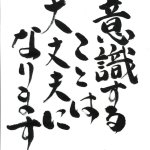 意識する
ここは
大丈夫に
なります